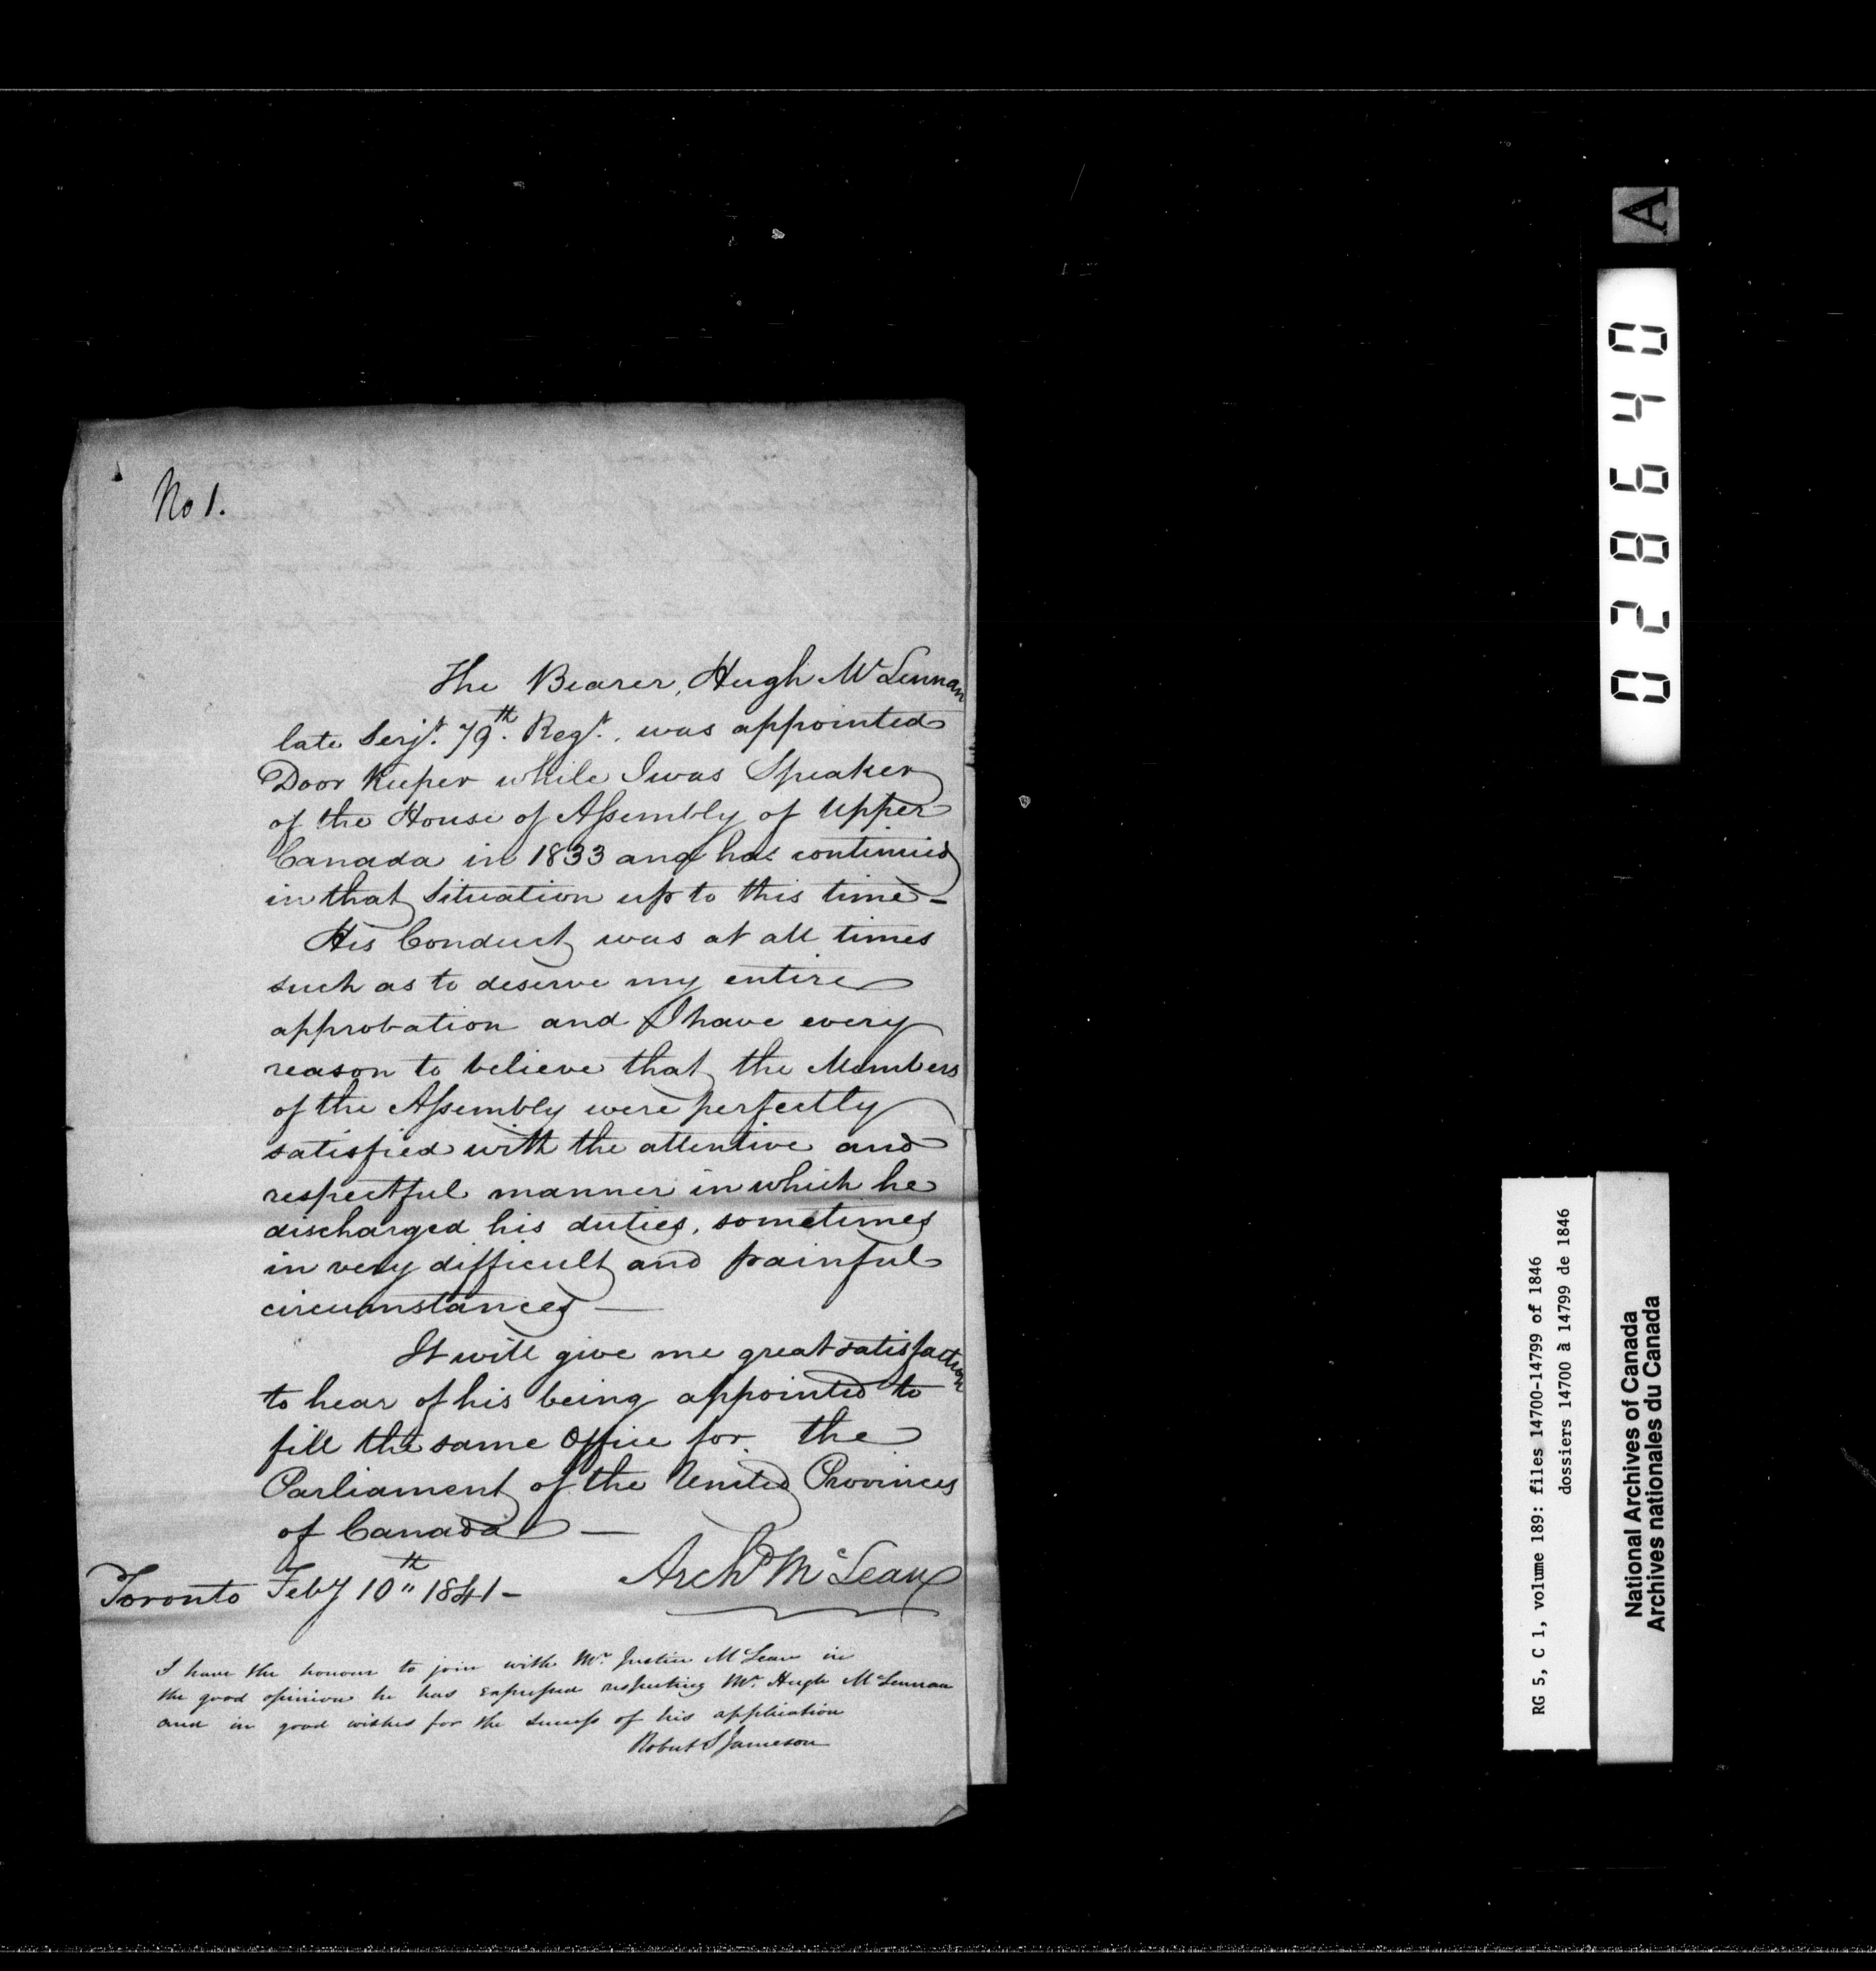 No 1.
The Bearer, Hugh McLennan
late Serjt. 79th. Regt., was appointed
Door Keeper while I was Speaker
of the House of Assembly of Upper
Canada in 1833 and has continued
in that Situation up to this time –
His Conduct was at all times
such as to deserve my entire
approbation and I have every
reason to believe that the Members
of the Assembly were perfectly
satisfied with the attentive and
respectful manner in which he
discharged his duties, sometimes
in very difficult and painful
circumstances —
It will give me great satisfaction
to hear of his being appointed to
fill the same Office for the
Parliament of the United Provinces
of Canada —
Archd McLean
Toronto Feby 10th 1841 –
I have the honour to join with Mr. Justice McLean in
the good opinion he has expressed respecting Mr. Hugh McLennan
and in good wishes for the success of his application
Robert S Jameson
A
028640
RG 5, C 1, volume 189: files 14700-14799 of 1846
dossiers 14700 à 14799 de 1846
National Archives of Canada
Archives nationales du Canada